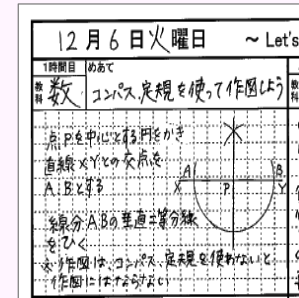 12月6日火曜日 ～Let's
1時間目 めあて
教科 数 コンパス、定規を使って作図しよう
点Pを中心とする円をかき
直線XYとの交点を
A、Bとする
線分ABの垂直二等分線
をひく
※作図は、コンパス、定規を使わないと、
作図にはならない
A B
X P Y